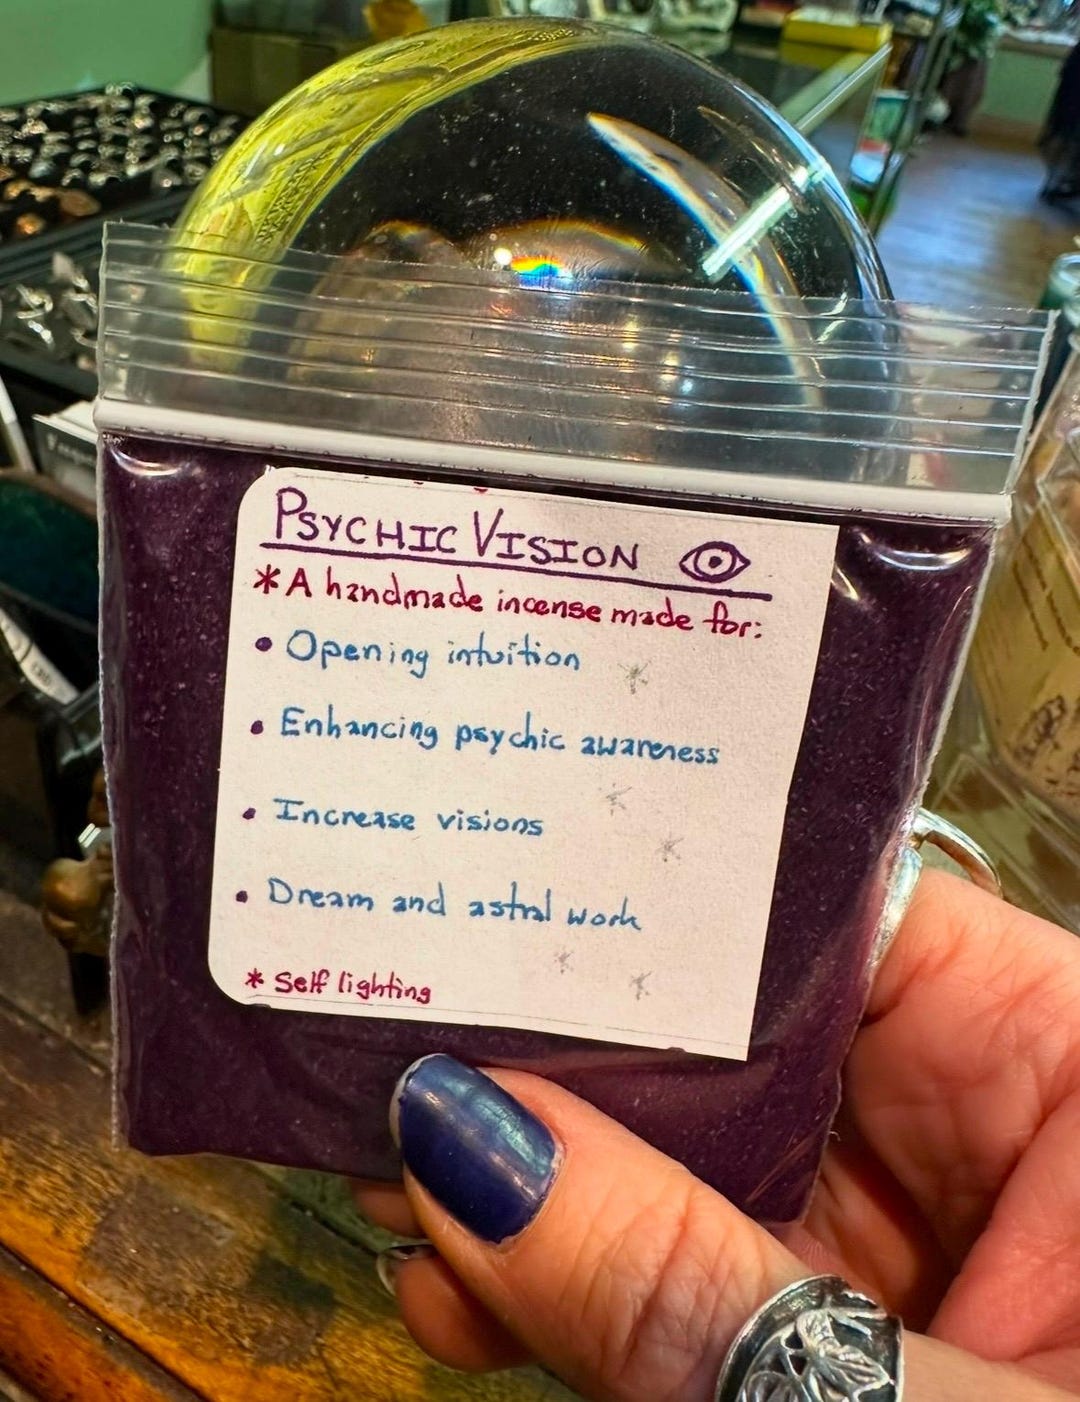 PSYCHIC VISION
* A handmade incense made for:
• Opening intuition
• Enhancing psychic awareness
• Increase visions
• Dream and astral work
* Self lighting